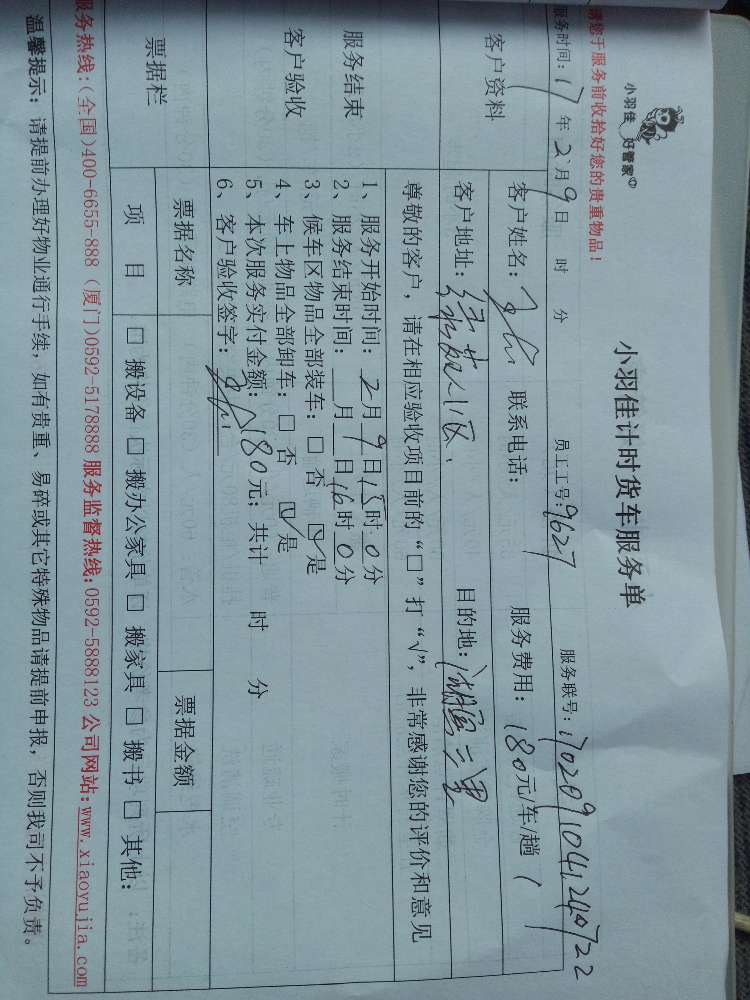 小羽佳 好管家
小羽佳计时货车服务单
请您于服务前收拾好您的贵重物品！
服务时间：17年2月9日 时 分 员工工号：9627 服务联号：1702091041240722
客户资料
客户姓名： 联系电话： 服务费用：180元/车/趟
客户地址： 目的地：
尊敬的客户，请在相应验收项目前的“□”打“√”，非常感谢您的评价和意见
服务结束
客户验收
1、服务开始时间：2月9日15时0分
2、服务结束时间： 月 日16时0分
3、候车区物品全部装车：□ 否 ☑ 是
4、车上物品全部卸车：□ 否 ☑ 是
5、本次服务实付金额：180元；共计 时 分
6、客户验收签字：
票据栏
票据名称 票据金额
项 目 □ 搬设备 □ 搬办公家具 □ 搬家具 □ 搬书 □ 其他：
服务热线:(全国)400-6655-888 (厦门)0592-5178888 服务监督热线:0592-5888123 公司网站:www.xiaoyujia.com
温馨提示：请提前办理好物业通行手续，如有贵重、易碎或其它特殊物品请提前申报，否则我司不予负责。